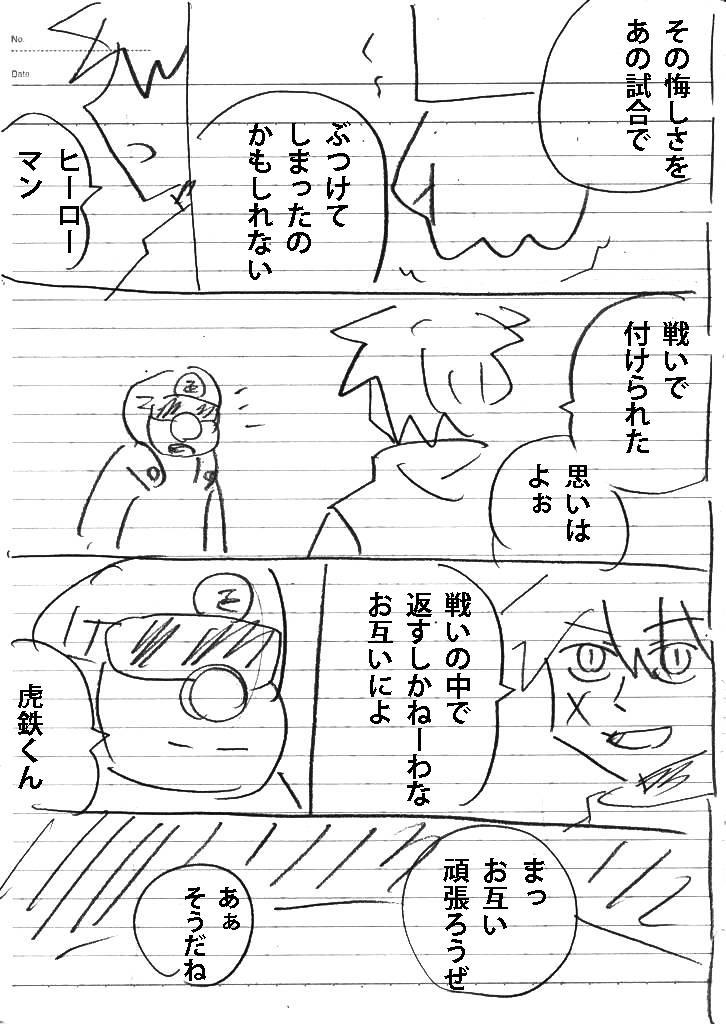 No.
Date
その悔しさを
あの試合で
ぶつけて
しまったの
かもしれない
ヒーロー
マン
戦いで
付けられた
思いは
よぉ
戦いの中で
返すしかねーわな
お互いによ
虎鉄くん
まっ
お互い
頑張ろうぜ
あぁ
そうだね